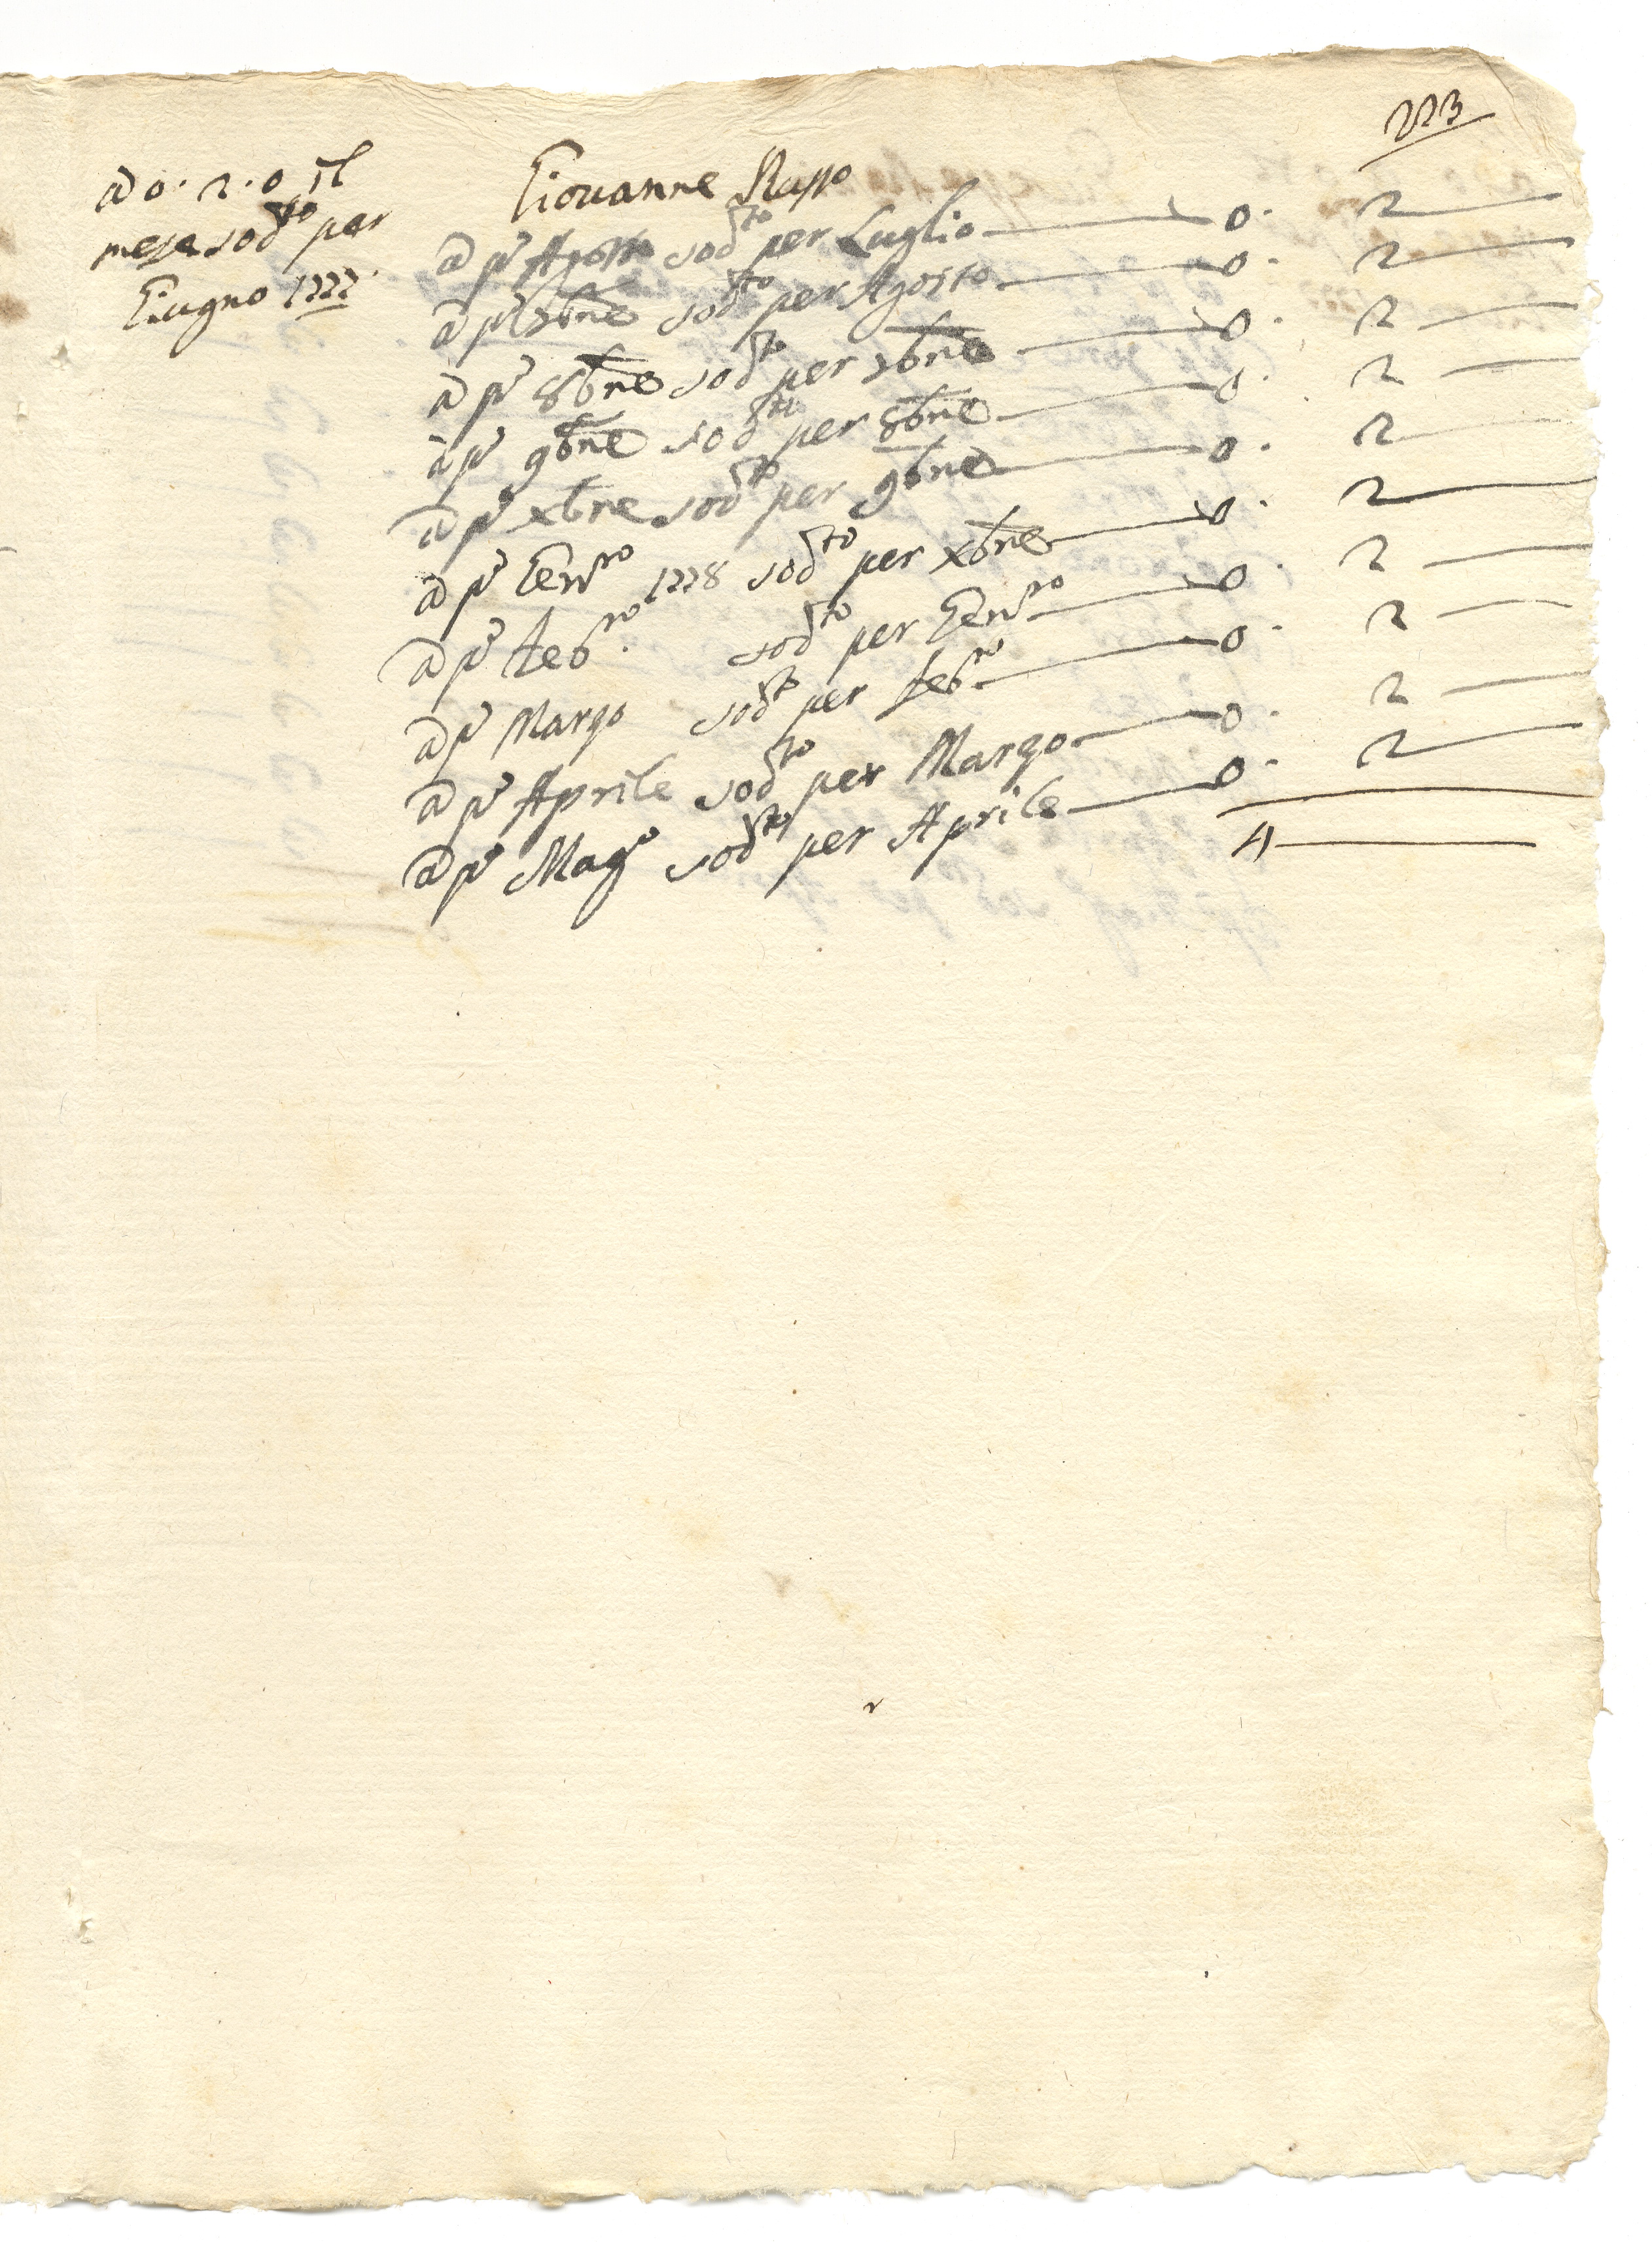 223
à 0. 2. 0 il
mese sodto per
Giugno 1777
Giovanne
à po Agosto sodto per Luglio — 0. 2 —
à po 7bre sodto per Agosto — 0. 2 —
à po 8bre sodto per 7bre — 0. 2 —
à po 9bre sodto per 8bre — 0. 2 —
à po xbre sodto per 9bre — 0. 2 —
à po Gennro 1778 sodto per xbre — 0. 2 —
à po Febro. sodto per Gennro — 0. 2 —
à po Marzo sodto per Febro — 0. 2 —
à po Aprile sodto per Marzo — 0. 2 —
à po Mago sodto per Aprile — 0. 2 —
4 —